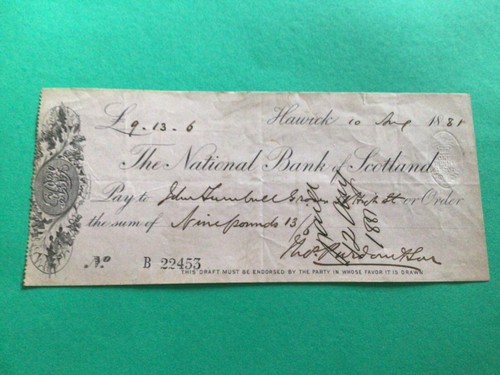 £9-13-6 Hawick 10 Aug 1881
The National Bank of Scotland
Pay to John Turnbull High St or Order
the sum of Nine pounds 13/6
Thos. & Son
No. B 22453
THIS DRAFT MUST BE ENDORSED BY THE PARTY IN WHOSE FAVOR IT IS DRAWN